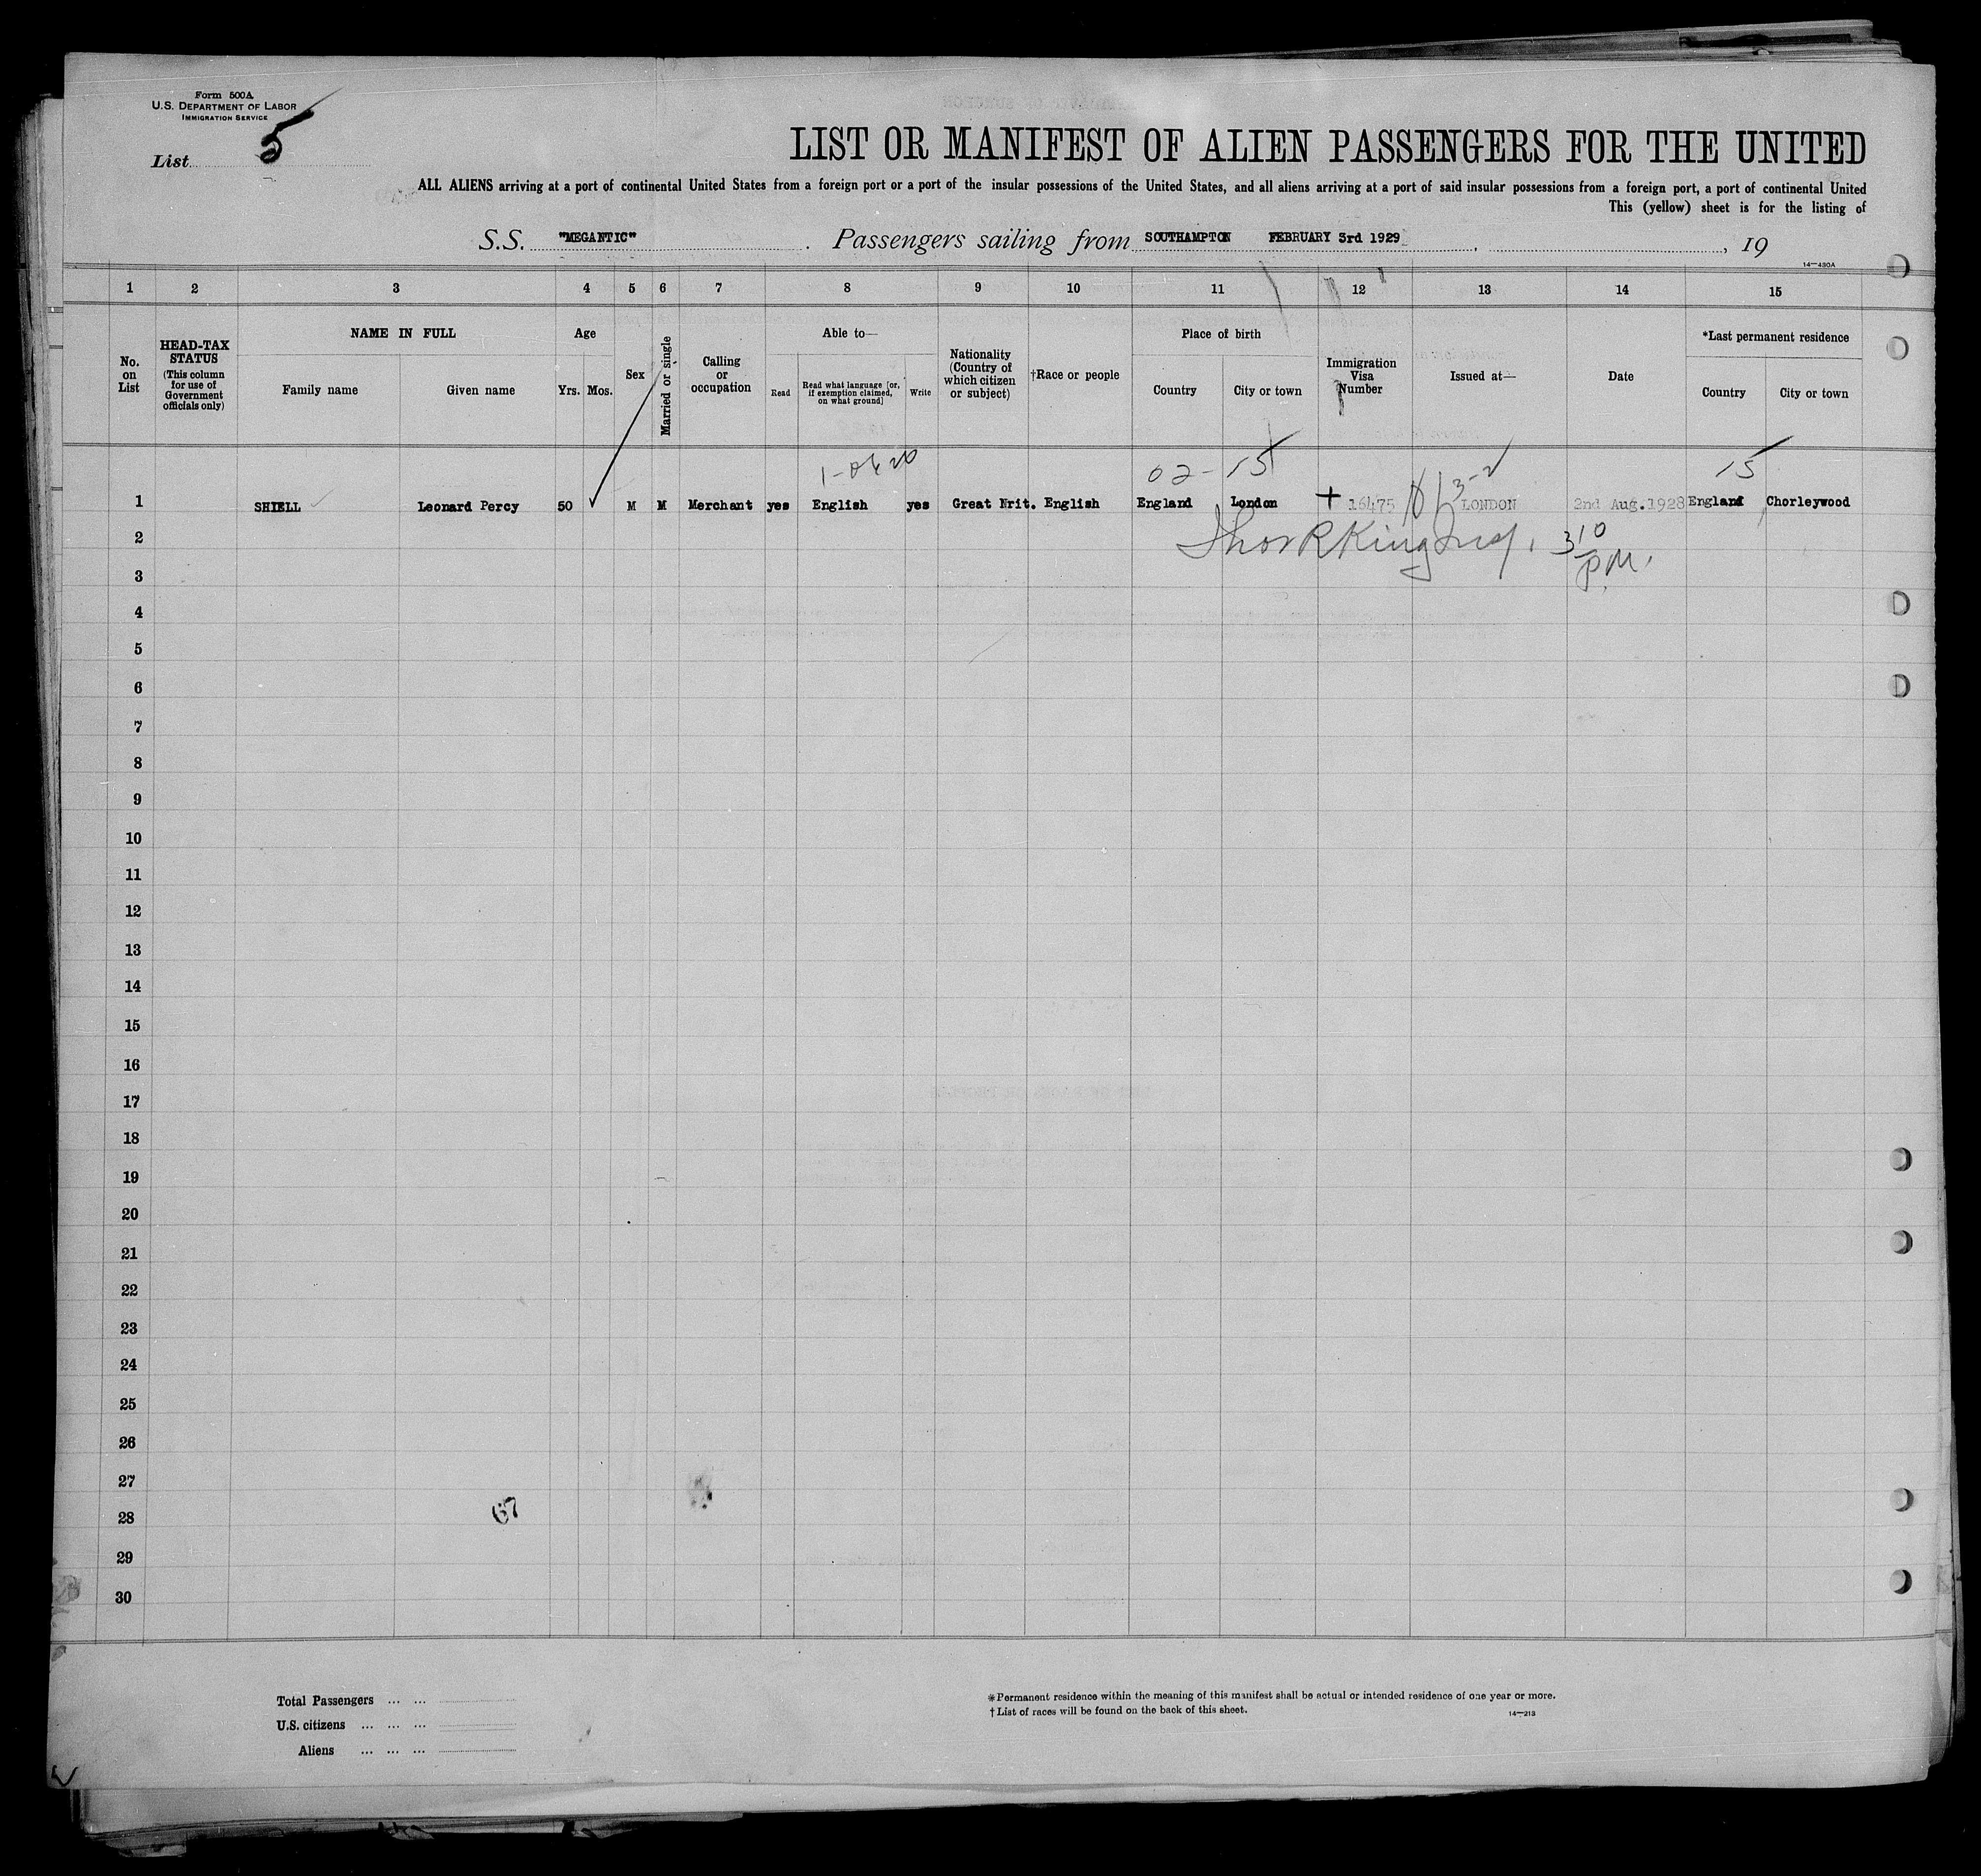 Form 500A
U.S. DEPARTMENT OF LABOR
IMMIGRATION SERVICE
List 5
LIST OR MANIFEST OF ALIEN PASSENGERS FOR THE UNITED
ALL ALIENS arriving at a port of continental United States from a foreign port or a port of the insular possessions of the United States, and all aliens arriving at a port of said insular possessions from a foreign port, a port of continental United
This (yellow) sheet is for the listing of
S.S. "MEGANTIC" . Passengers sailing from SOUTHAMPTON FEBRUARY 3rd 1929 , 19
14—430A
1 2 3 4 5 6 7 8 9 10 11 12 13 14 15
No. on List
HEAD-TAX STATUS (This column for use of Government officials only)
NAME IN FULL
Family name Given name
Age
Yrs. Mos.
Sex
Married or single
Calling or occupation
Able to—
Read
Read what language [or, if exemption claimed, on what ground]
Write
Nationality (Country of which citizen or subject)
†Race or people
Place of birth
Country City or town
Immigration Visa Number
Issued at—
Date
*Last permanent residence
Country City or town
02- 15 3-2 15
1 SHIELL Leonard Percy 50 M M Merchant yes English yes Great Nrit. English England London 16475 LONDON 2nd Aug.1928 England Chorleywood
2 King 3 10
P.M.
3
4
5
6
7
8
9
10
11
12
13
14
15
16
17
18
19
20
21
22
23
24
25
26
27
28
67
29
30
Total Passengers ... ...
U.S. citizens ... ... ...
Aliens ... ... ...
*Permanent residence within the meaning of this manifest shall be actual or intended residence of one year or more.
†List of races will be found on the back of this sheet.
14—213